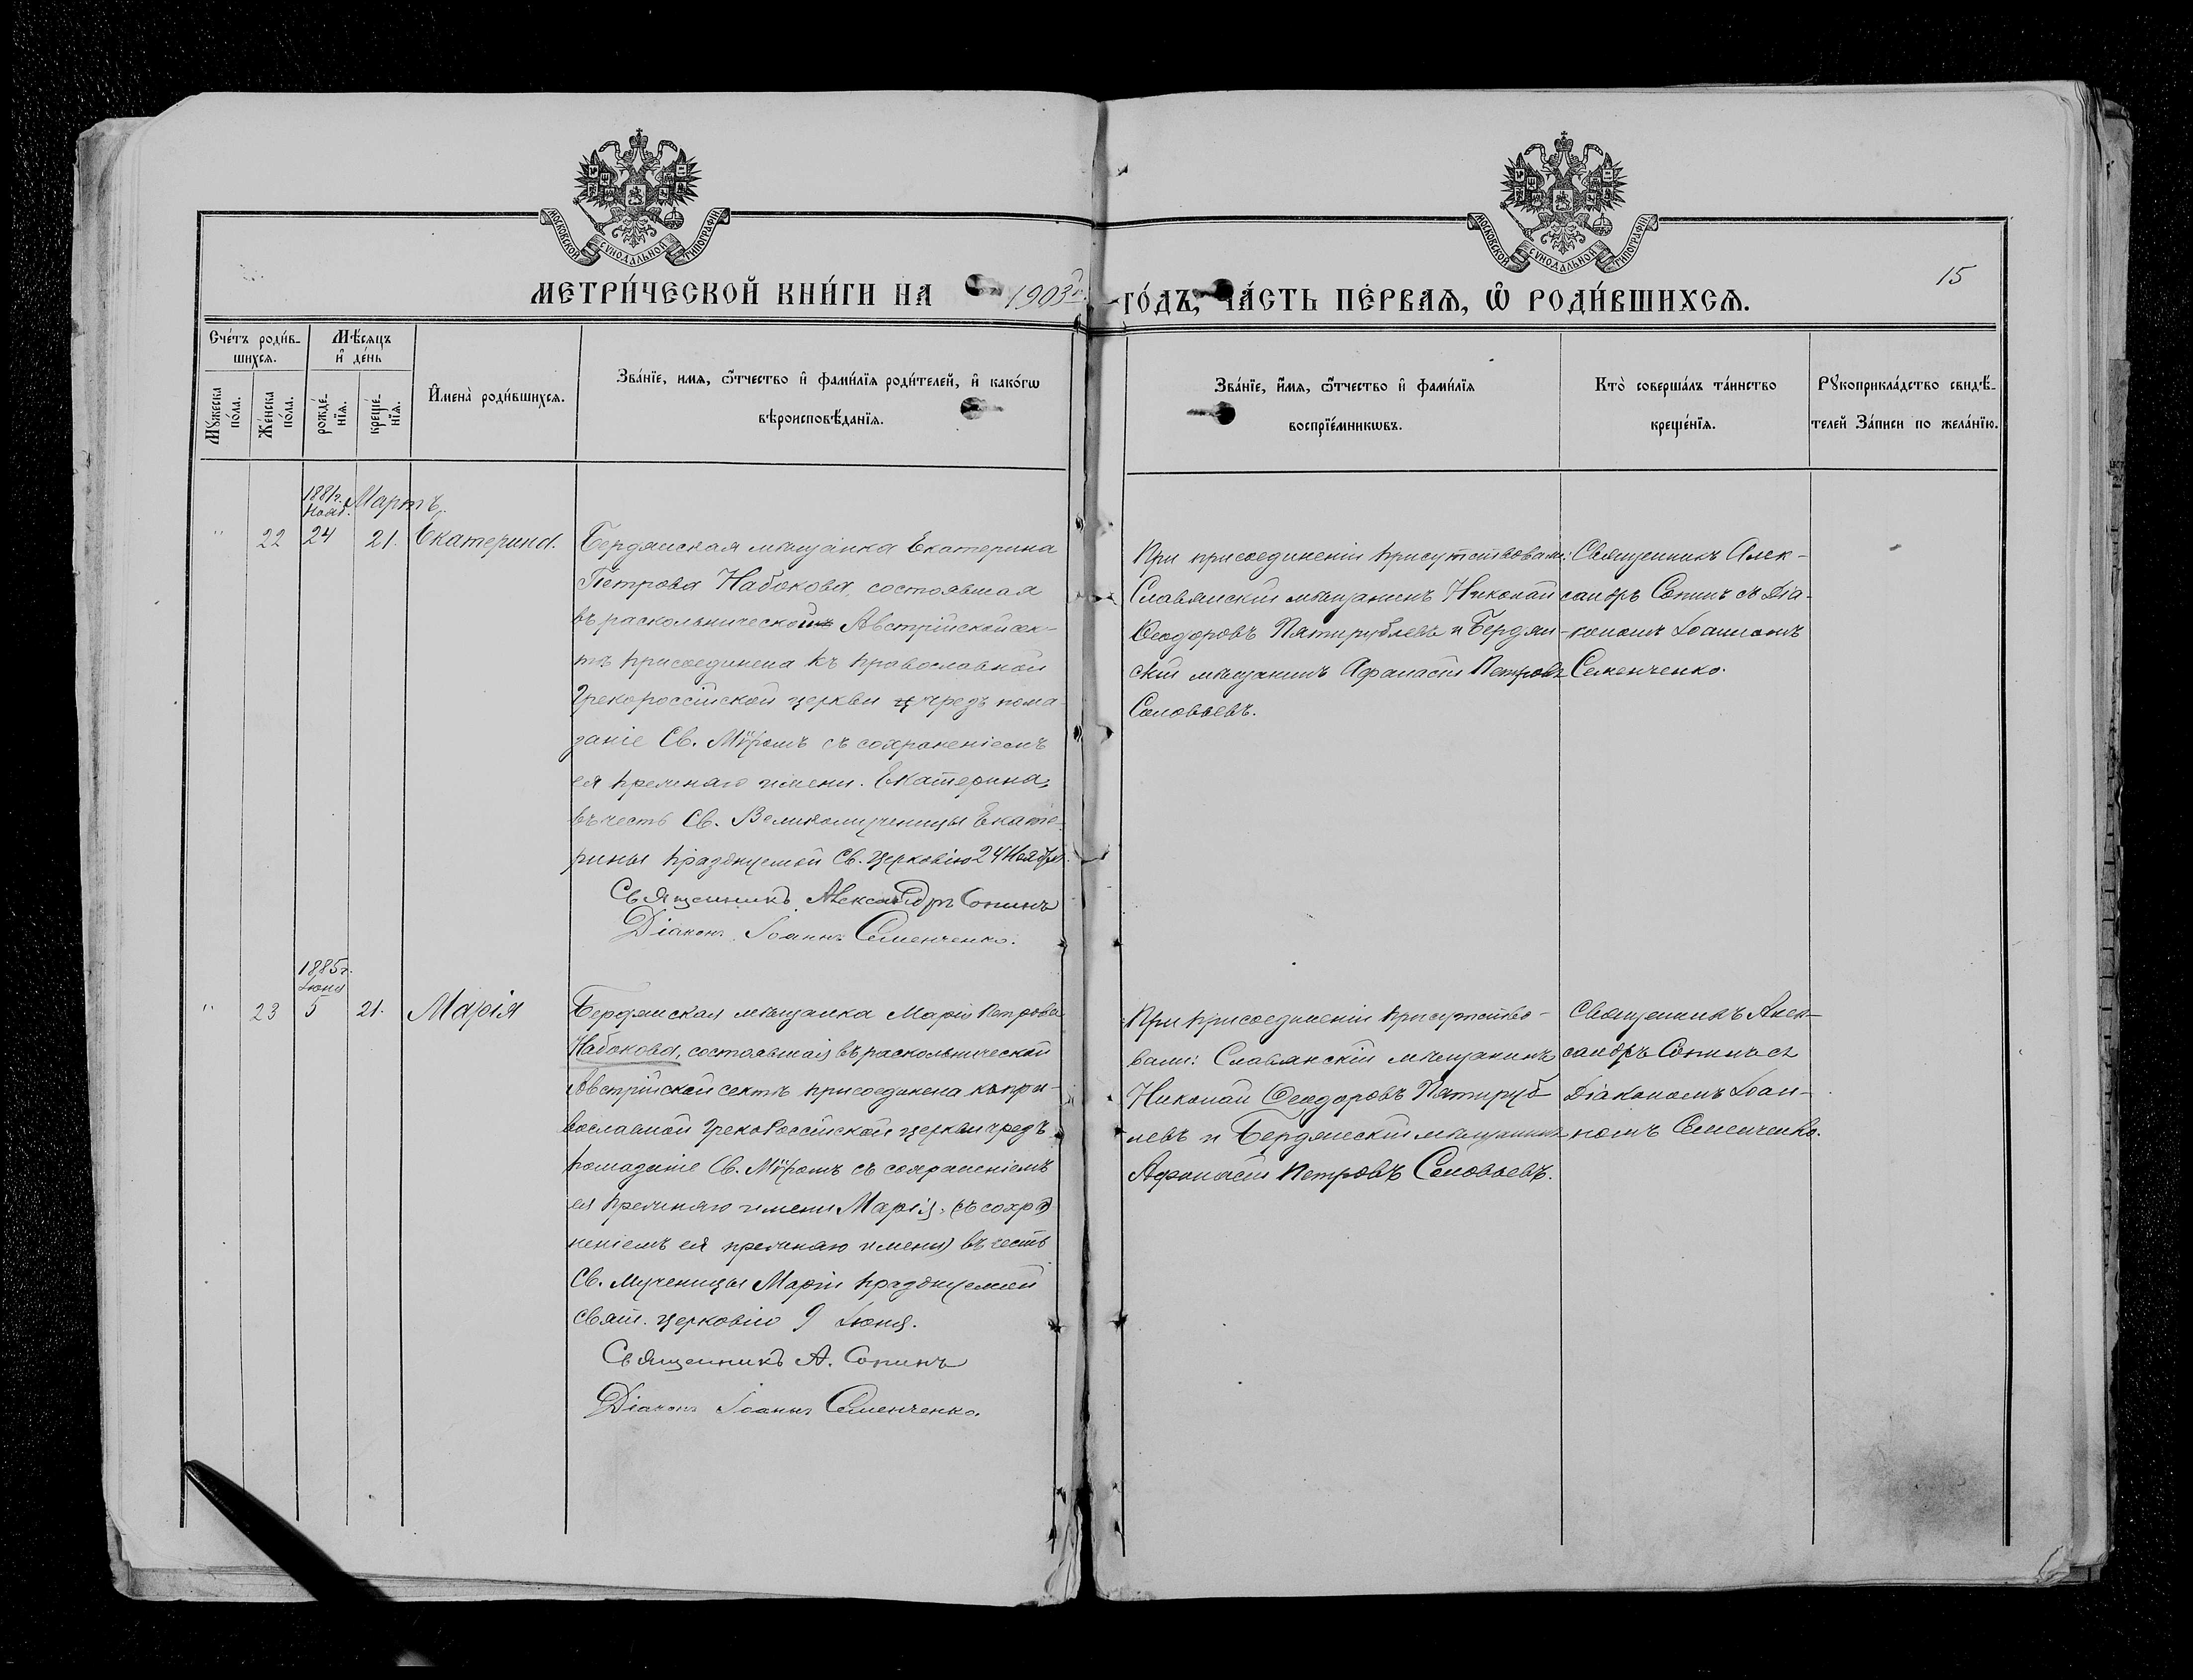 МОСКОВСКОЙ СѴНОДАЛЬНОЙ ТИПОГРАФІИ
МОСКОВСКОЙ СѴНОДАЛЬНОЙ ТИПОГРАФІИ
15
МЕТРИ́ЧЕСКОЙ КНИ́ГИ НА 1903 г. ГО́ДЪ, ЧА́СТЬ ПЕ́РВАѦ, Ѡ҆ РОДИ́ВШИХСѦ.
Сче́тъ роди́в-
шихсѧ.
Мѣ́сѧцъ
и҆ де́нь
Мꙋ́жеска
по́ла.
Же́нска
по́ла.
рожде́-
нїѧ.
креще́-
нїѧ.
И҆мена̀ роди́вшихсѧ.
Зва́нїе, имѧ, ѿтчество и҆ фами́лїѧ роди́телей, и҆ како́гѡ
вѣроисповѣ́данїѧ.
Зва́нїе, и҆́мѧ, ѿтчество и҆ фами́лїѧ
воспрїе́мникѡвъ.
Кто̀ соверша́лъ та́инство
креще́нїѧ.
Рꙋкоприкла́дство свидѣ́-
телей За́писи по жела́нїю.
1881 г. Мартъ.
Нояб.
" 22 24 21. Екатерина.
Бердянская мѣщанка Екатерина
Петрова Набокова, состоявшая
въ раскольнической Австрійской сек-
тѣ присоединена къ православной
Грекороссійской церкви чрезъ пома-
заніе Св. Мѵромъ съ сохраненіемъ
ея прежняго имени. Екатерина,
въ честь Св. Великомученицы Екате-
рины празднуемой Св. Церковію 24 Ноября.
Священникъ Александръ Сопинъ
Діаконъ Іоаннъ Семенченко.
При присоединеніи присутствовали:
Славянскій мѣщанинъ Николай
Ѳеодоровъ Пятирублевъ и Бердян-
скій мѣщанинъ Аѳанасій Петровъ
Соловьевъ.
Священникъ Алек-
сандръ Сопинъ съ Діа-
кономъ Іоанномъ
Семенченко.
1885 г.
Іюня
" 23 5 21. Марія
Бердянская мѣщанка Марія Петрова
Набокова, состоявшая въ раскольнической
Австрійской сектѣ присоединена къ пра-
вославной Греко Россійской церкви чрезъ
помазаніе Св. Мѵромъ съ сохраненіемъ
ея прежняго имени Марія, (съ сохра-
неніемъ ея прежняго имени) въ честь
Св. Мученицы Маріи празднуемой
Свят. церковію 9 Іюня.
Священникъ А. Сопинъ
Діаконъ Іоаннъ Семенченко.
При присоединеніи присутство-
вали: Славянскій мѣщанинъ
Николай Ѳеодоровъ Пятируб-
левъ и Бердянскій мѣщанинъ
Аѳанасій Петровъ Соловьевъ.
Священникъ Алек-
сандръ Сопинъ съ
Діакономъ Іоан-
номъ Семенченко.